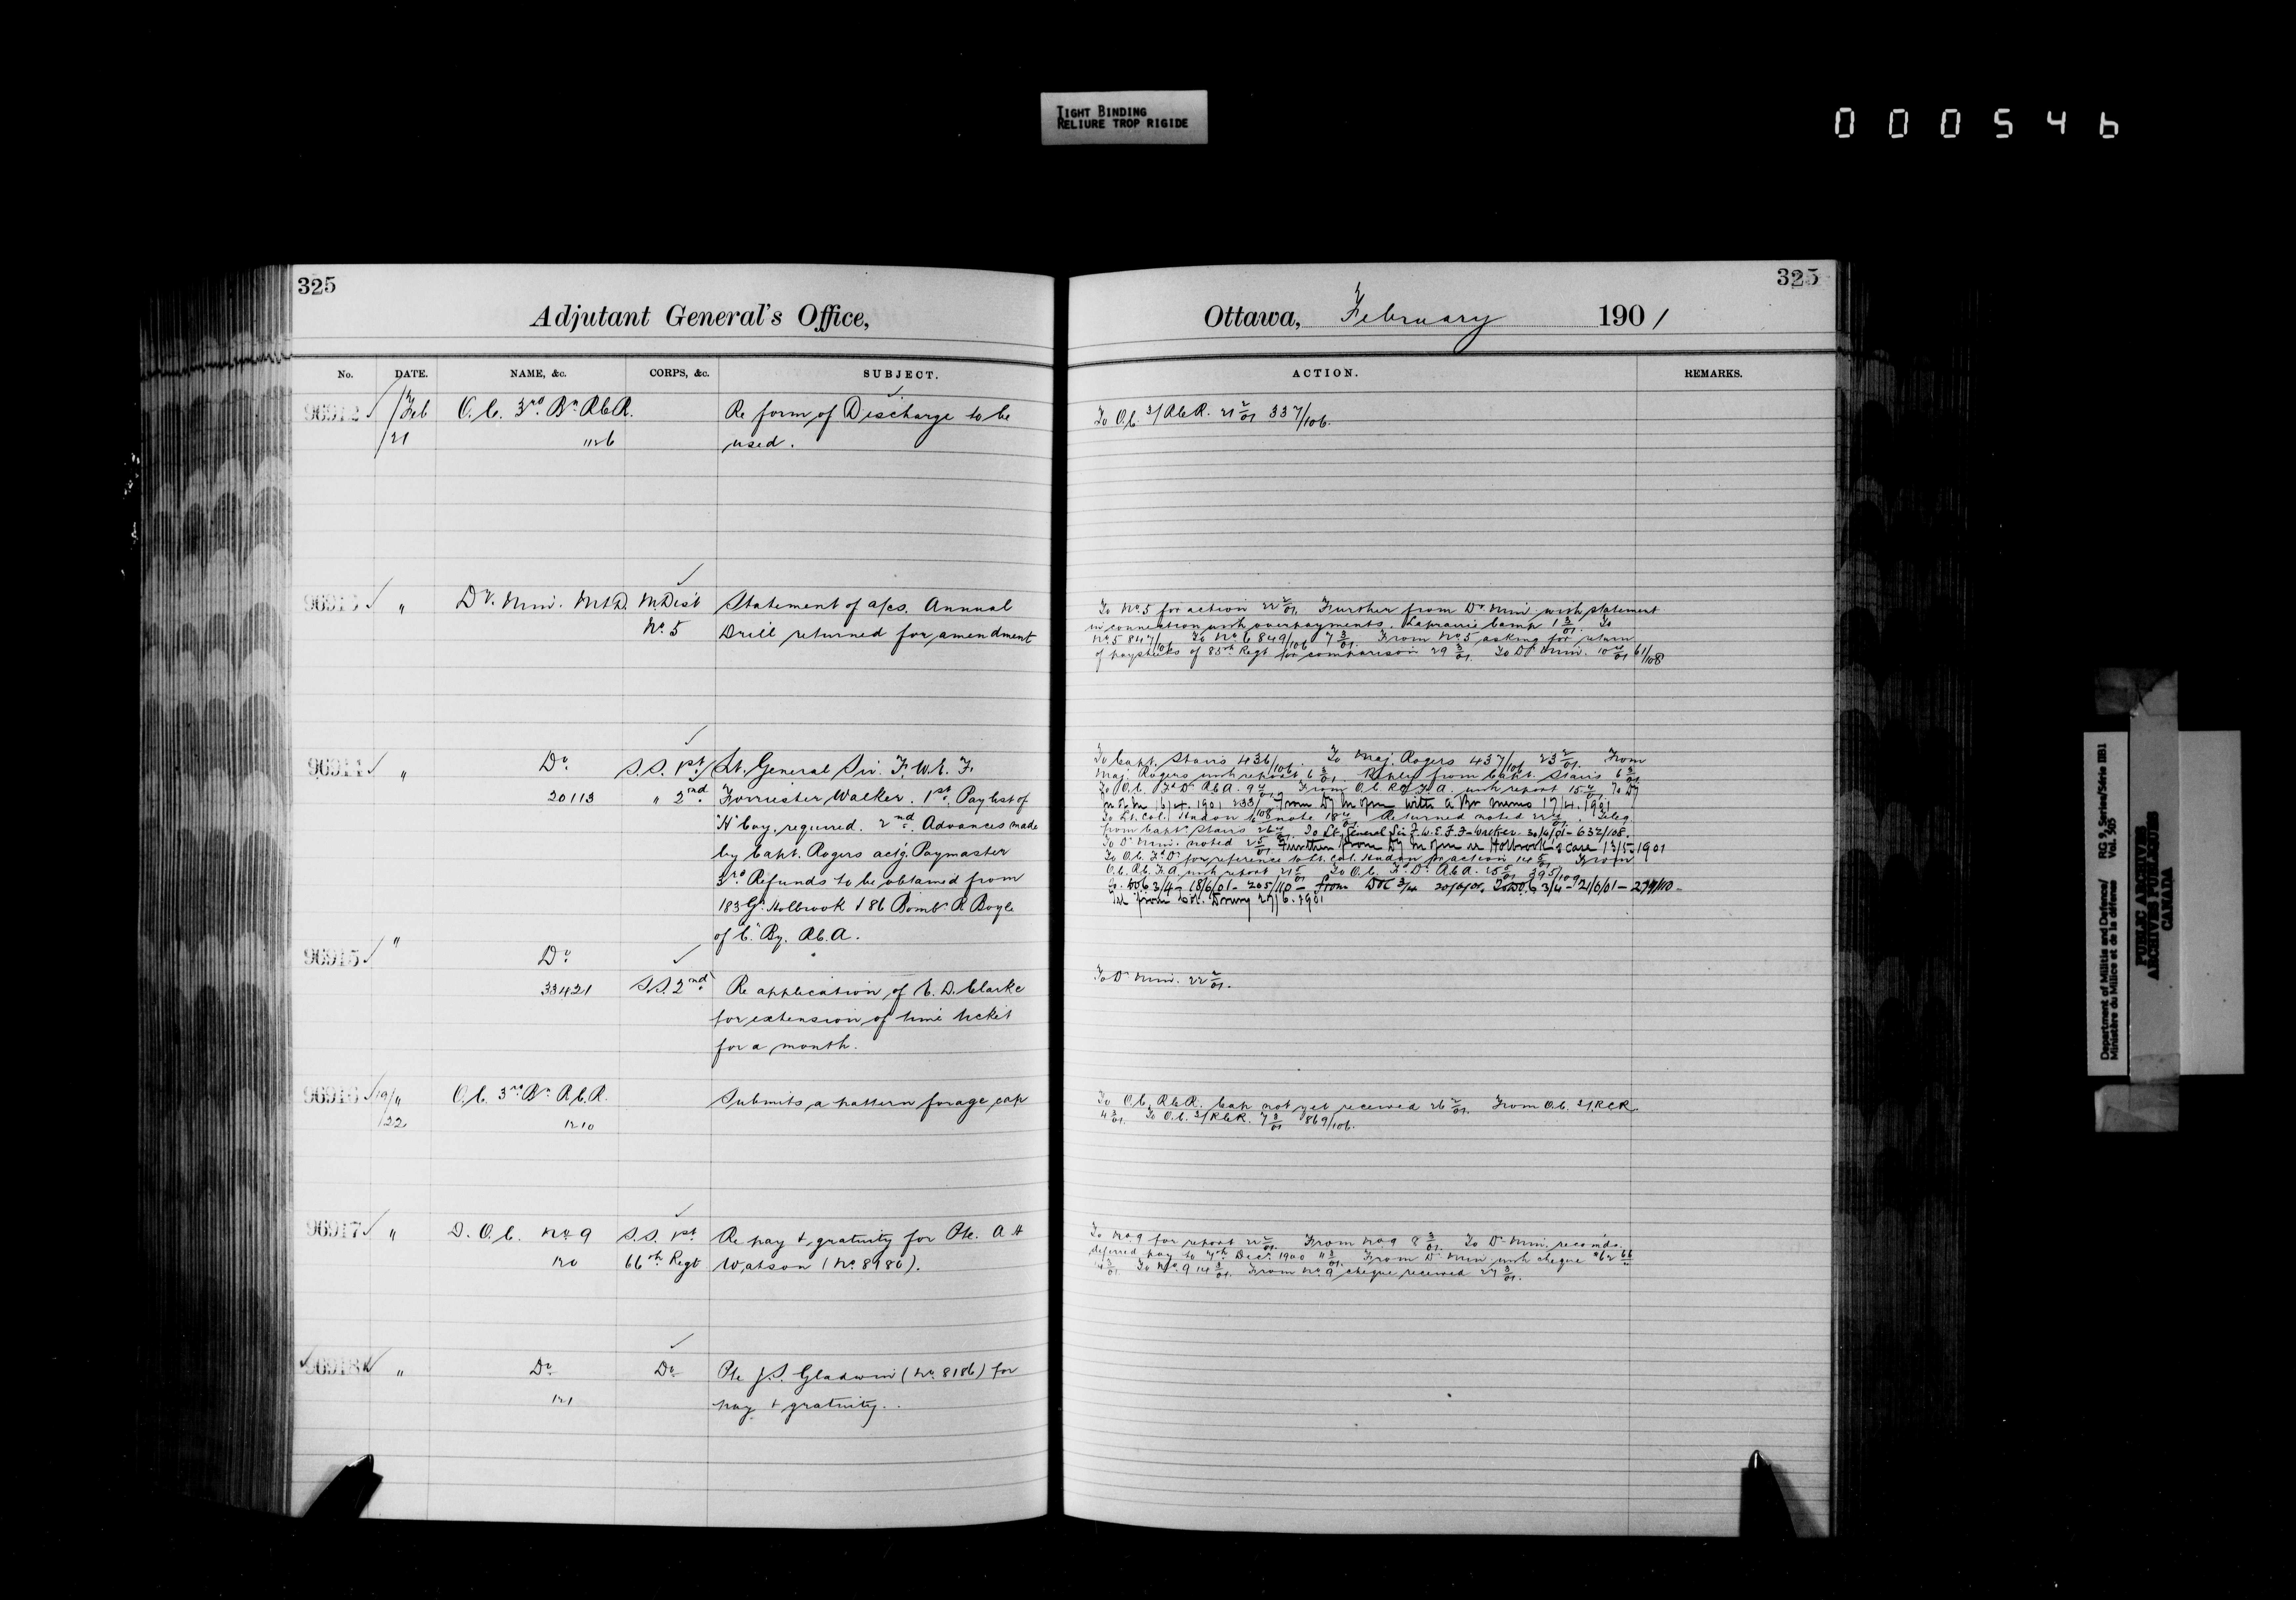 TIGHT BINDING
RELIURE TROP RIGIDE
000546
325
Adjutant General's Office,
No. DATE. NAME, &c. CORPS, &c. SUBJECT.
96912 Feb O.C. 3rd Bn R.C.R. Re form of Discharge to be
/21 1126 used.
96913 " Dy. Min. M&D. M.Dist Statement of a/cs. Annual
No. 5 Drill returned for amendment
96914 " Do. S.S. 1st Lt. General Sir. F. W. E. F.
20113 " 2nd Forrester Walker. 1st Pay list of
"H" Coy. required. 2nd. Advances made
by Capt. Rogers actg. Paymaster
3rd. Refunds to be obtained from
183 Gr. Holbrook & 86 Bombr. R Boyle
of "C" By. R.C.A.
96915 " Do.
33421 S.S. 2nd Re application of E. D. Clarke
for extension of time ticket
for a month.
96916 19/" O.C. 3rd Bn R.C.R. Submits a pattern forage cap
/22 1210
96917 " D.O.C. No. 9 S.S. 1st Re pay & gratuity for Pte. A H
120 66th Regt Watson (No. 8986).
96918 " Do. Do. Pte J.S. Gladwin (No. 8186) for
121 pay & gratuity.
325
Ottawa, February 1901
ACTION. REMARKS.
To O.C. 3/R.C.R. 21 2/01 337/106.
To No. 5 for action 22 2/01. Further from Dy. Min. with statement
in connection with overpayments. Laprairie Camp 1 3/01. To
No. 5 847/106 To No. 6 849/106 7 3/01. From No. 5 asking for return
of paysheets of 85th Regt for comparison 29 3/01. To Dy. Min. 10 4/01 61/108
To Capt. Stairs 436/106. To Maj. Rogers 437/106 23 2/01. From
Maj. Rogers with report 6 3/01. Reply from Capt. Stairs 6 3/01
To O.C. R.C.A. From O.C. with report
16/4.1901 233/108 From Dy M of M with a Br memo 17/4.1901
To Lt. Col. Hudon to note Returned noted
from Capt. Stairs To Lt. General Sir F.W.E.F.F-Walker 30/4/01-632/108.
To Dy. Min. noted Further from Dy M of M re Holbrook's case 13/5.1901
for reference to Lt. Col. Hudon for action From
with report To O.C. R.C.A. 395/109
18/6/01-205/110- from
from Col. Drury 27/6.1901
To Dy. Min. 22 2/01.
To O.C. R.C.R. Cap not yet received 26 2/01. From O.C. 3/R.C.R.
4 3/01. To O.C. 3/R.C.R. 7 3/01 869/106.
To No. 9 for report 22 2/01. From No. 9 8 3/01. To Dy. Min. recomds.
deferred pay to 7th Decr. 1900 11 3/01. From Dy. Min with cheque
14 3/01. To No. 9 14 3/01. From No. 9 cheque received 27 3/01.
Department of Militia and Defence/
Ministère du Milice et de la défense
RG 9, Series/Série IIB1
Vol. 505
PUBLIC ARCHIVES
ARCHIVES PUBLIQUES
CANADA